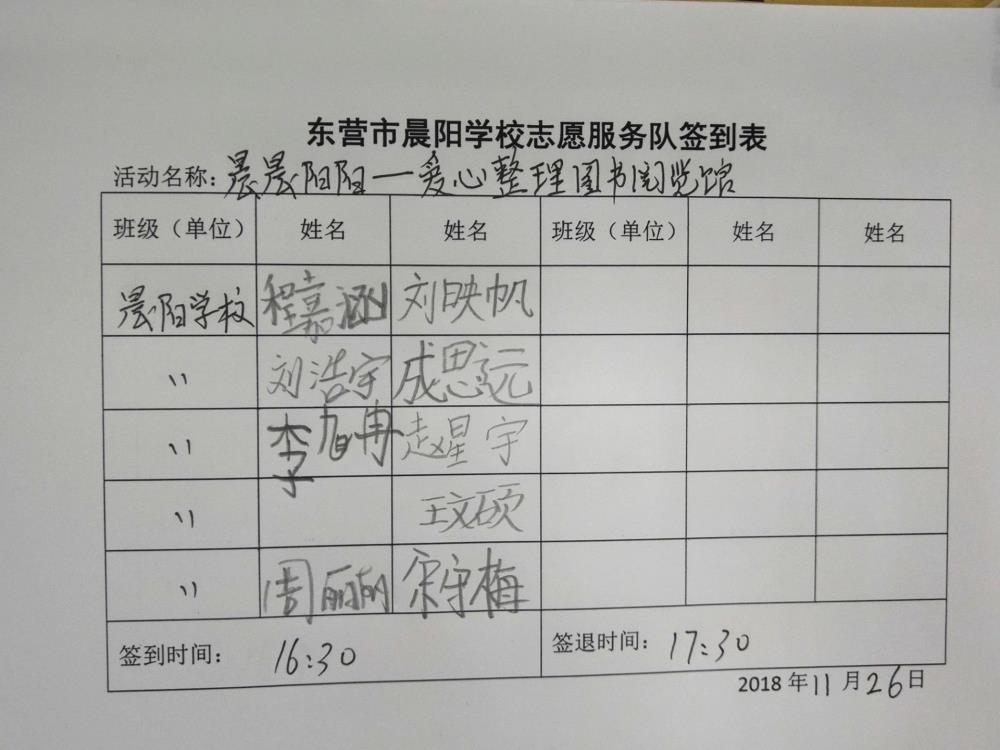 东营市晨阳学校志愿服务队签到表
活动名称：晨晨阳阳一爱心整理图书阅览馆
班级（单位） 姓名 姓名 班级（单位） 姓名 姓名
晨阳学校 程嘉涵 刘映帆
〃 刘浩宇 成思远
〃 李旭冉 赵星宇
〃 王文硕
〃 周丽 宋守梅
签到时间： 16:30 签退时间： 17:30
2018 年 11 月 26 日